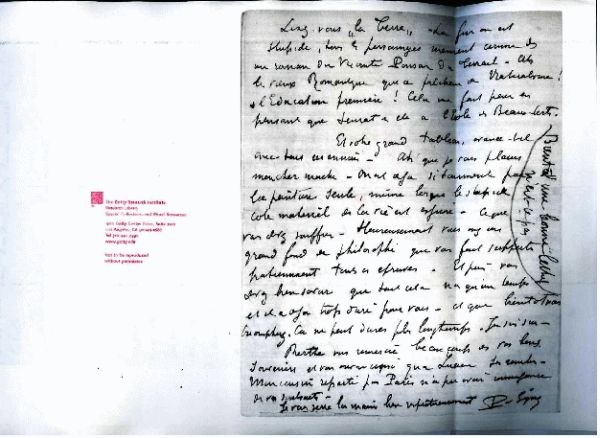 The Getty Research Institute
Research Library
Special Collections and Visual Resources
1200 Getty Center Drive, Suite 1100
Los Angeles, CA 90049-1688
www.getty.edu
Not to be reproduced
without permission
Lisez vous "la Terre" - La fin en est
stupide, tous les personnages meurent comme des
un roman du Vicomte Ponson du Terrail - Ah
le vieux Romantique que ce pêcheur de Naturalisme!
l'Education première! Cela me fait peur en
pensant que Seurat a été à l'Ecole des Beaux-Arts.
Et votre grand tableau, avance-t-el
avec tous ces ennuis - Ah que je vous plains
mon cher maître - On est déjà si tourmenté par
la peinture seule, même lorsque le
côté matériel de la vie est assuré - Ce que
vous devez souffrir - Heureusement vous avez un
grand fond de philosophie qui vous fait supporter
patiemment toutes ces épreuves - Et puis vous
devez bien savoir que tout cela n'a qu'un temps
et il a déjà trop duré pour vous - et que bientôt vous
triompherez. Ca ne peut durer plus longtemps. J'en suis sûr -
Berthe vous remercie beaucoup de vos bons
souvenirs et vous aussi que Lucien
Mon cousin reparti pour Paris n'a pu avoir
de vos
Je vous serre la main bien respectueusement P. Signac
Bientôt une bonne lettre
n'est ce pas